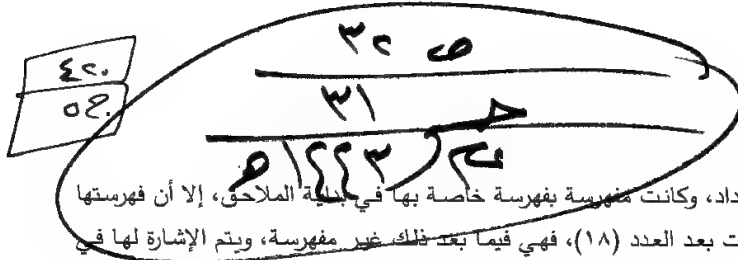 ص ٣٢
٣١
١٤٤٣هـ
٤٢٠
داد، وكانت مفهرسة بفهرسة خاصة بها في بداية الملاحق، إلا أن فهرستها
ت بعد العدد (١٨)، فهي فيما بعد ذلك غير مفهرسة، ويتم الإشارة لها في